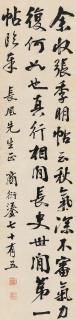 余收張季明帖云秋氣深不審氣力
復何如也真行相間長史世間第一
帖臨奉
長風先生正 商衍鎏七十有五